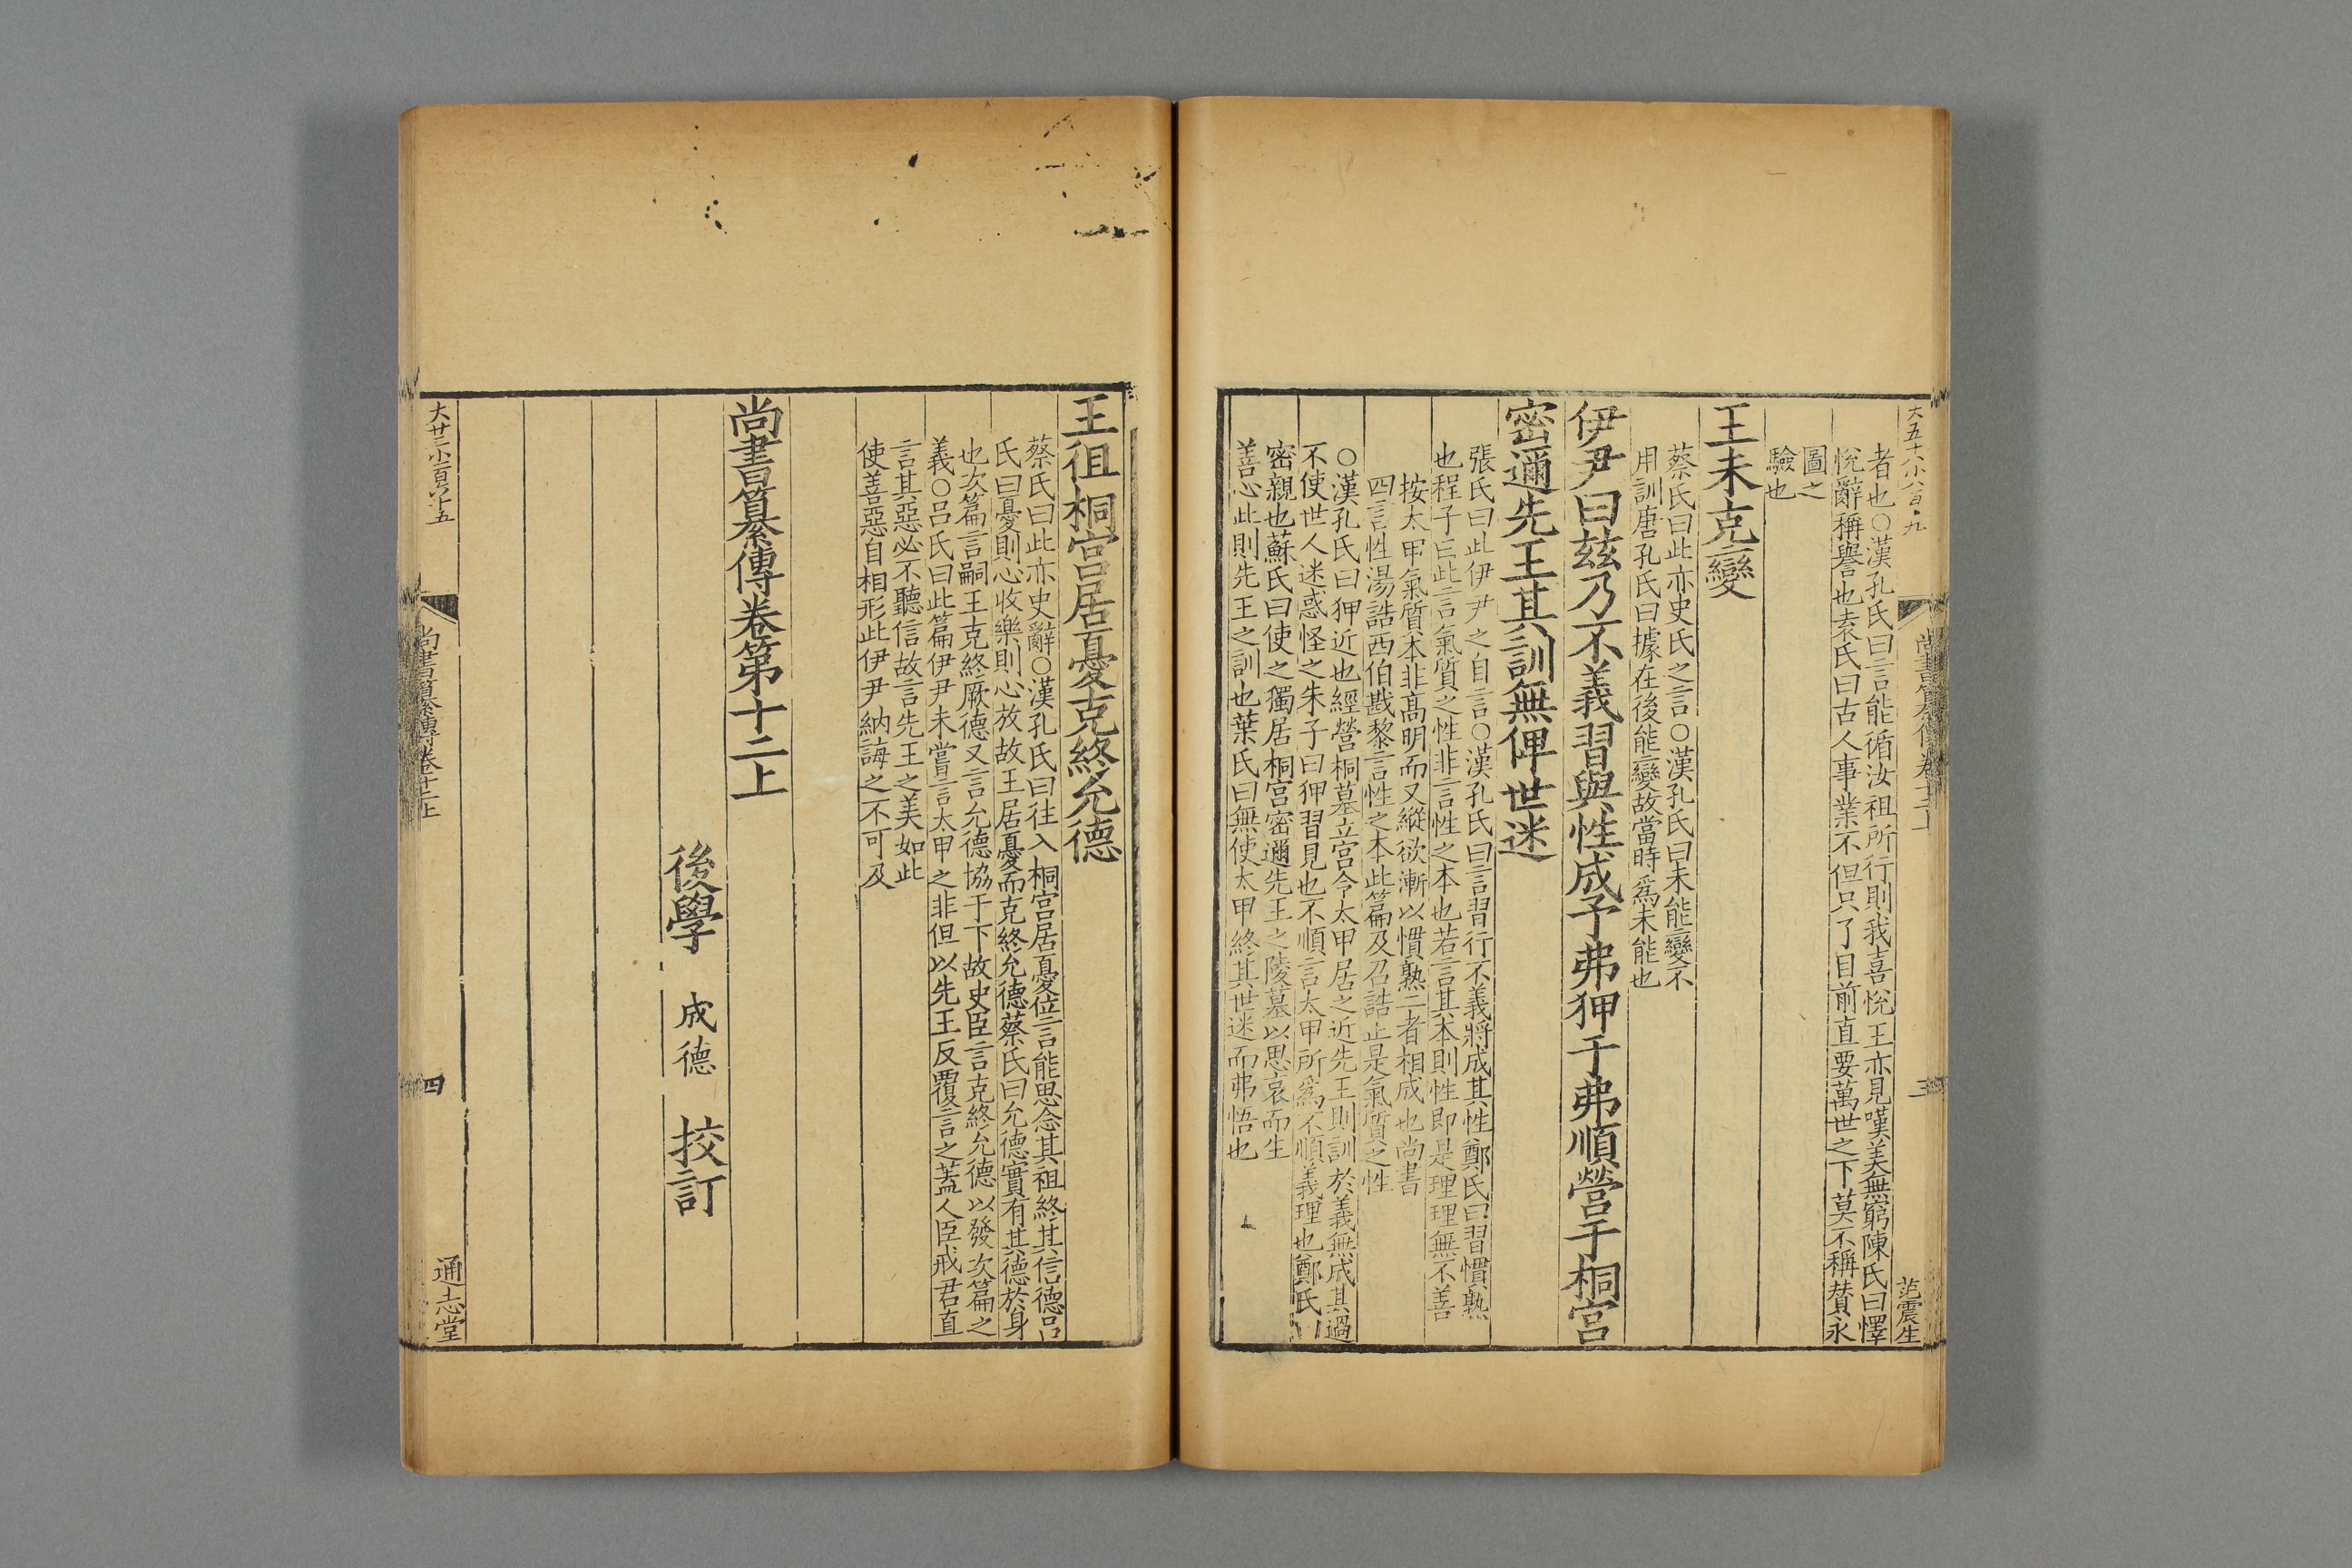 大五十八小八百〇九
者也○漢孔氏曰言能循汝祖所行則我喜悅王亦見嘆美無窮陳氏曰懌
悅辭稱譽也袁氏曰古人事業不但只了目前直要萬世之下莫不稱賛永
圖之
驗也
王未克變
蔡氏曰此亦史氏之言○漢孔氏曰未能變不
用訓唐孔氏曰據在後能變故當時爲未能也
伊尹曰兹乃不義習與性成予弗狎于弗順營于桐宫
密邇先王其訓無俾世迷
張氏曰此伊尹之自言○漢孔氏曰言習行不義將成其性鄭氏曰習慣熟
也程子曰此言氣質之性非言性之本也若言其本則性即是理理無不善
按太甲氣質本非髙明而又縱欲漸以慣熟二者相成也尚書
四言性湯誥西伯戡黎言性之本此篇及召誥止是氣質之性
○漢孔氏曰狎近也經營桐墓立宫令太甲居之近先王則訓於義無成其過
不使世人迷惑怪之朱子曰狎習見也不順言太甲所爲不順義理也鄭氏曰
密親也蘇氏曰使之獨居桐宫密邇先王之陵墓以思哀而生
善心此則先王之訓也葉氏曰無使太甲終其世迷而弗悟也
尚書纂傳卷十二上
三
范震生
王徂桐宫居憂克終允德
蔡氏曰此亦史辭○漢孔氏曰往入桐宫居憂位言能思念其祖終其信德吕
氏曰憂則心收樂則心放故王居憂而克終允德蔡氏曰允德實有其德於身
也次篇言嗣王克終厥德又言允德協于下故史臣言克終允德以發次篇之
義○吕氏曰此篇伊尹未嘗言太甲之非但以先王反覆言之葢人臣戒君直
言其惡必不聽信故言先王之美如此
使善惡自相形此伊尹納誨之不可及
尚書纂傳卷第十二上
後學 成德 挍訂
大廿三小二百八十五
尚書纂傳卷十二上
四
通志堂